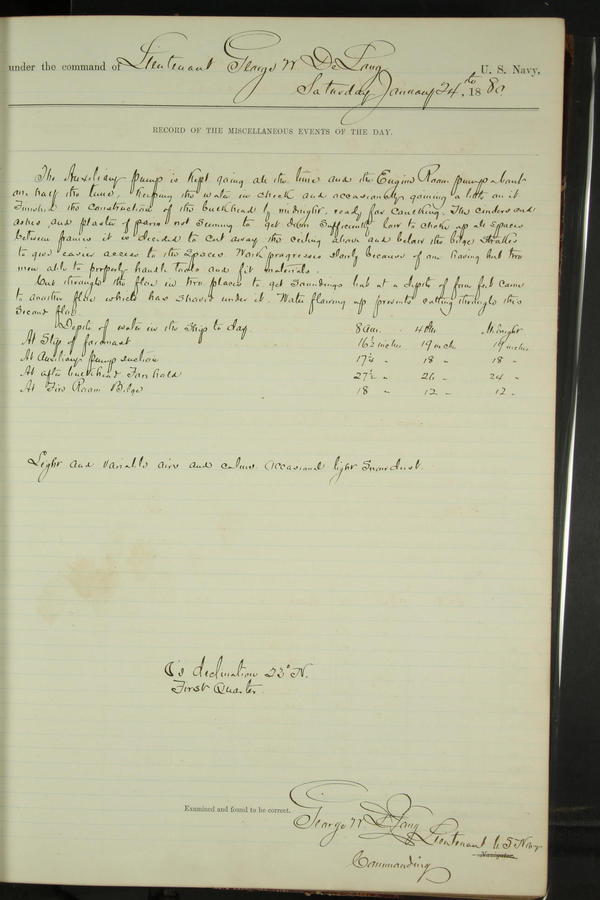 under the command of Lieutenant George W De Long U. S. Navy,
Saturday January 24th, 1880
RECORD OF THE MISCELLANEOUS EVENTS OF THE DAY.
The Auxiliary pump is kept going all the time and the Engine Room pump about
one half the time, keeping the water in check and occasionally gaining a little on it
Finished the construction of the bulkhead by midnight, ready for caulking. The cinders and
ashes and plaster of paris not seeming to get down sufficiently low to choke up all spaces
between frames it is decided to cut away the ceiling above and below the bilge strakes
to give easier access to the spaces. Work progresses slowly because of our having but two
men able to properly handle tools and fit materials.
Cut through the floe in two places to get soundings but at a depth of four feet came
to another floe which has shoved under it. Water flowing up prevents cutting through this
second floe.
Depth of water in the ship to day. 8 am. 4 PM. Midnight
At Step of foremast 16½ inches 19 inch 19 inches
At Auxiliary pump suction 17¼ " 18 " 18 "
At after bulkhead Fore hold 27½ " 26 " 24 "
At Fire Room Bilge 18 " 12 " 12 "
Light and variable airs and calms. Occasional light snow dust.
☾'s declination 23° N.
First Quarter.
Examined and found to be correct.
George W De Long Lieutenant U. S. Navy
Navigator.
Commanding